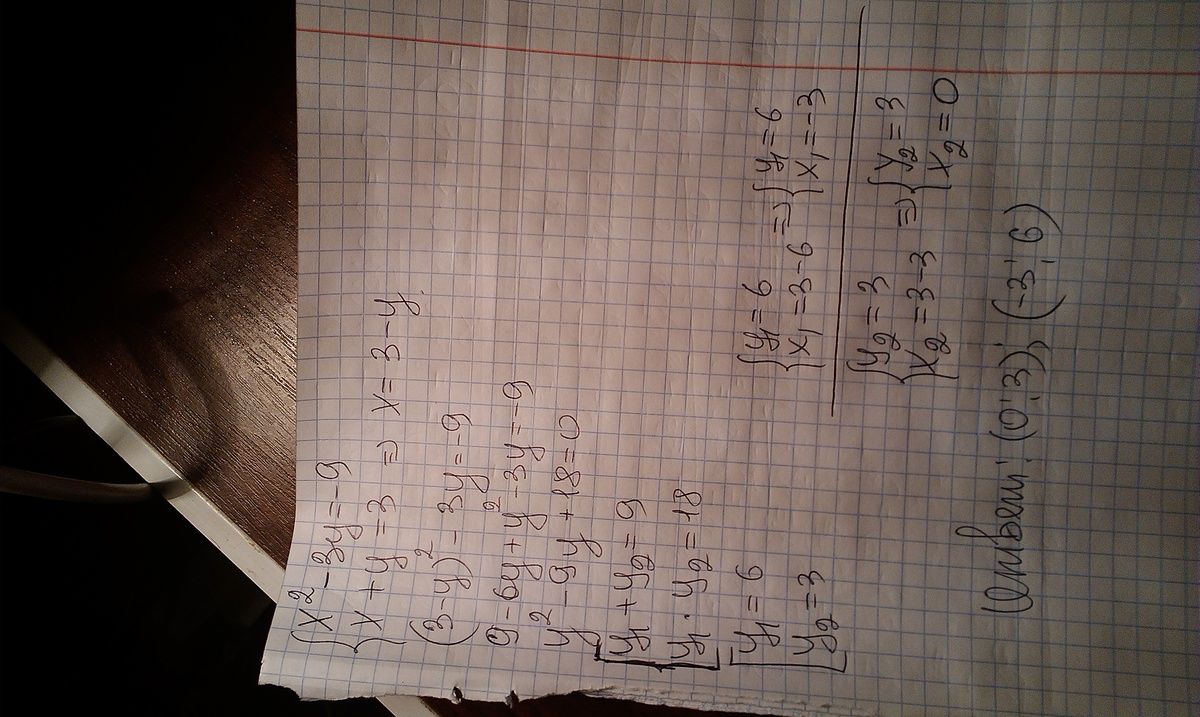 {x² - 3y = -9
{x + y = 3 => x = 3 - y.
(3-y)² - 3y = -9
9 - 6y + y² - 3y = -9
y² - 9y + 18 = 0
[y₁ + y₂ = 9
[y₁ · y₂ = 18
[y₁ = 6
[y₂ = 3
{y₁ = 6 => {y₁ = 6
{x₁ = 3-6 {x₁ = -3
{y₂ = 3 => {y₂ = 3
{x₂ = 3-3 {x₂ = 0
Ответ: (0; 3); (-3; 6)